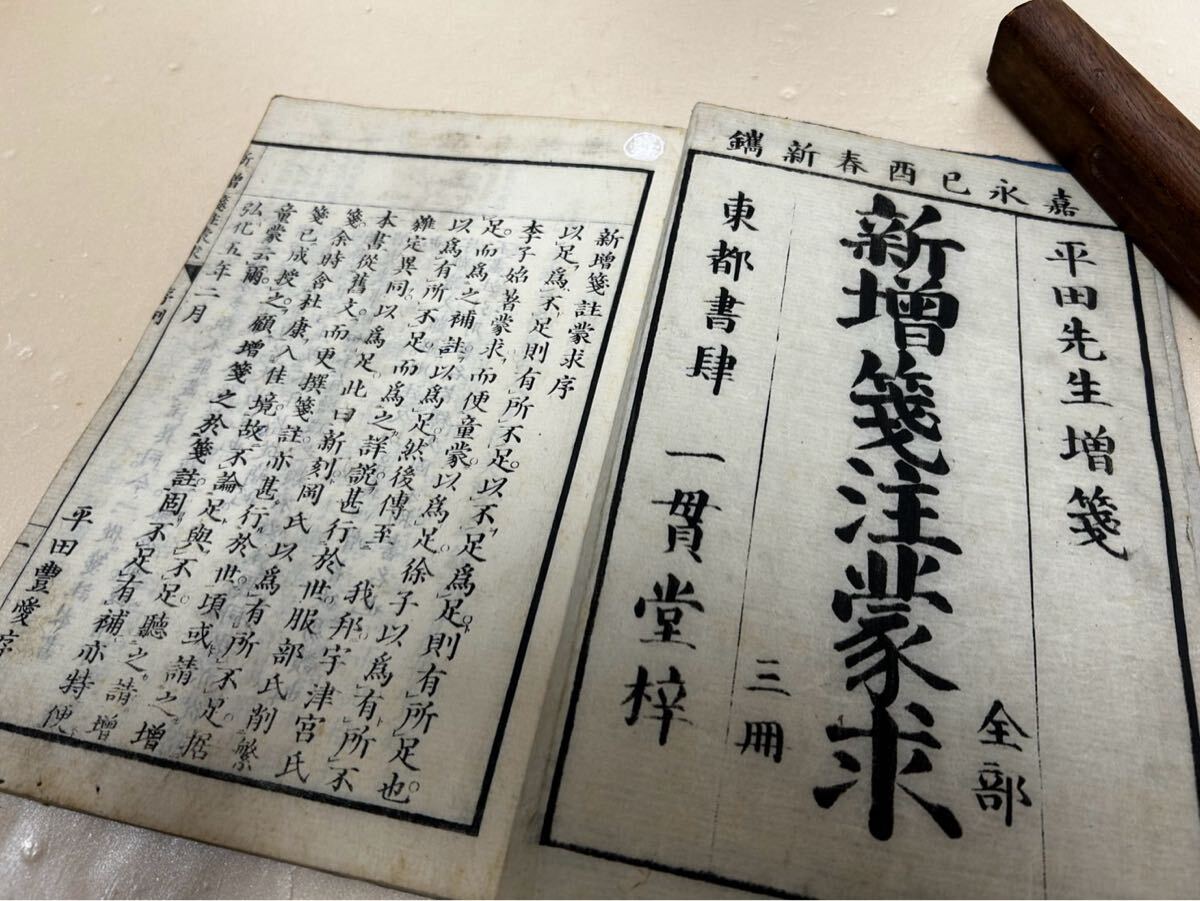 嘉永己酉春新鐫
平田先生増箋
新増箋注蒙求
全部
三冊
東都書肆 一貫堂梓
新増箋註蒙求序
以足爲不足則有所不足。以不足爲足。則有所足也
李子始著蒙求。而便童蒙。以爲足。徐子以爲有所不
足。而爲之補註。以爲足。然後傳至 我邦。宇津宮氏
以爲有所不足。而爲之詳説。甚行於世。服部氏削繁
雜定異同。以爲足。此曰新刻。岡氏以爲有所不足。据
本書從舊文。而更撰箋註。亦甚行於世。頃或請之増
箋。余時會杜康入佳境。故不論足與不足。聽之。請増
箋已成授之。顧増箋之於箋註。固不足有補。亦特便
童蒙云爾。
弘化五年二月
平田豐愛序
新増箋註蒙求 序例 一